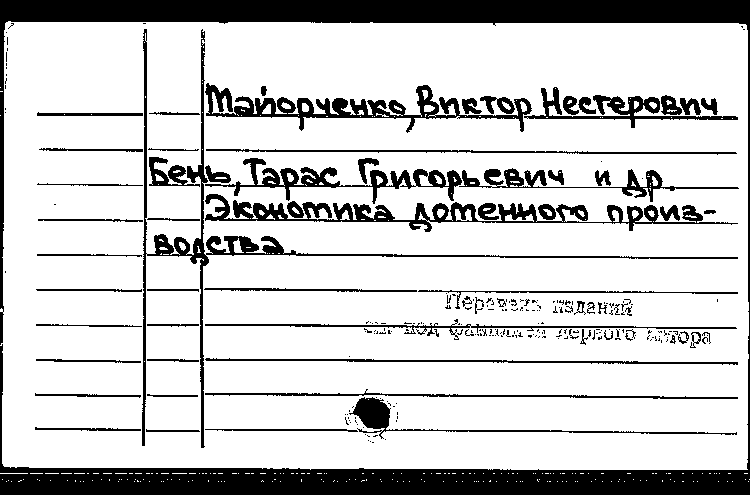 Майорченко, Виктор Нестерович
Бень, Тарас Григорьевич и др.
Экономика доменного произ-
водства.
Перечень изданий
см. под фамилией первого автора